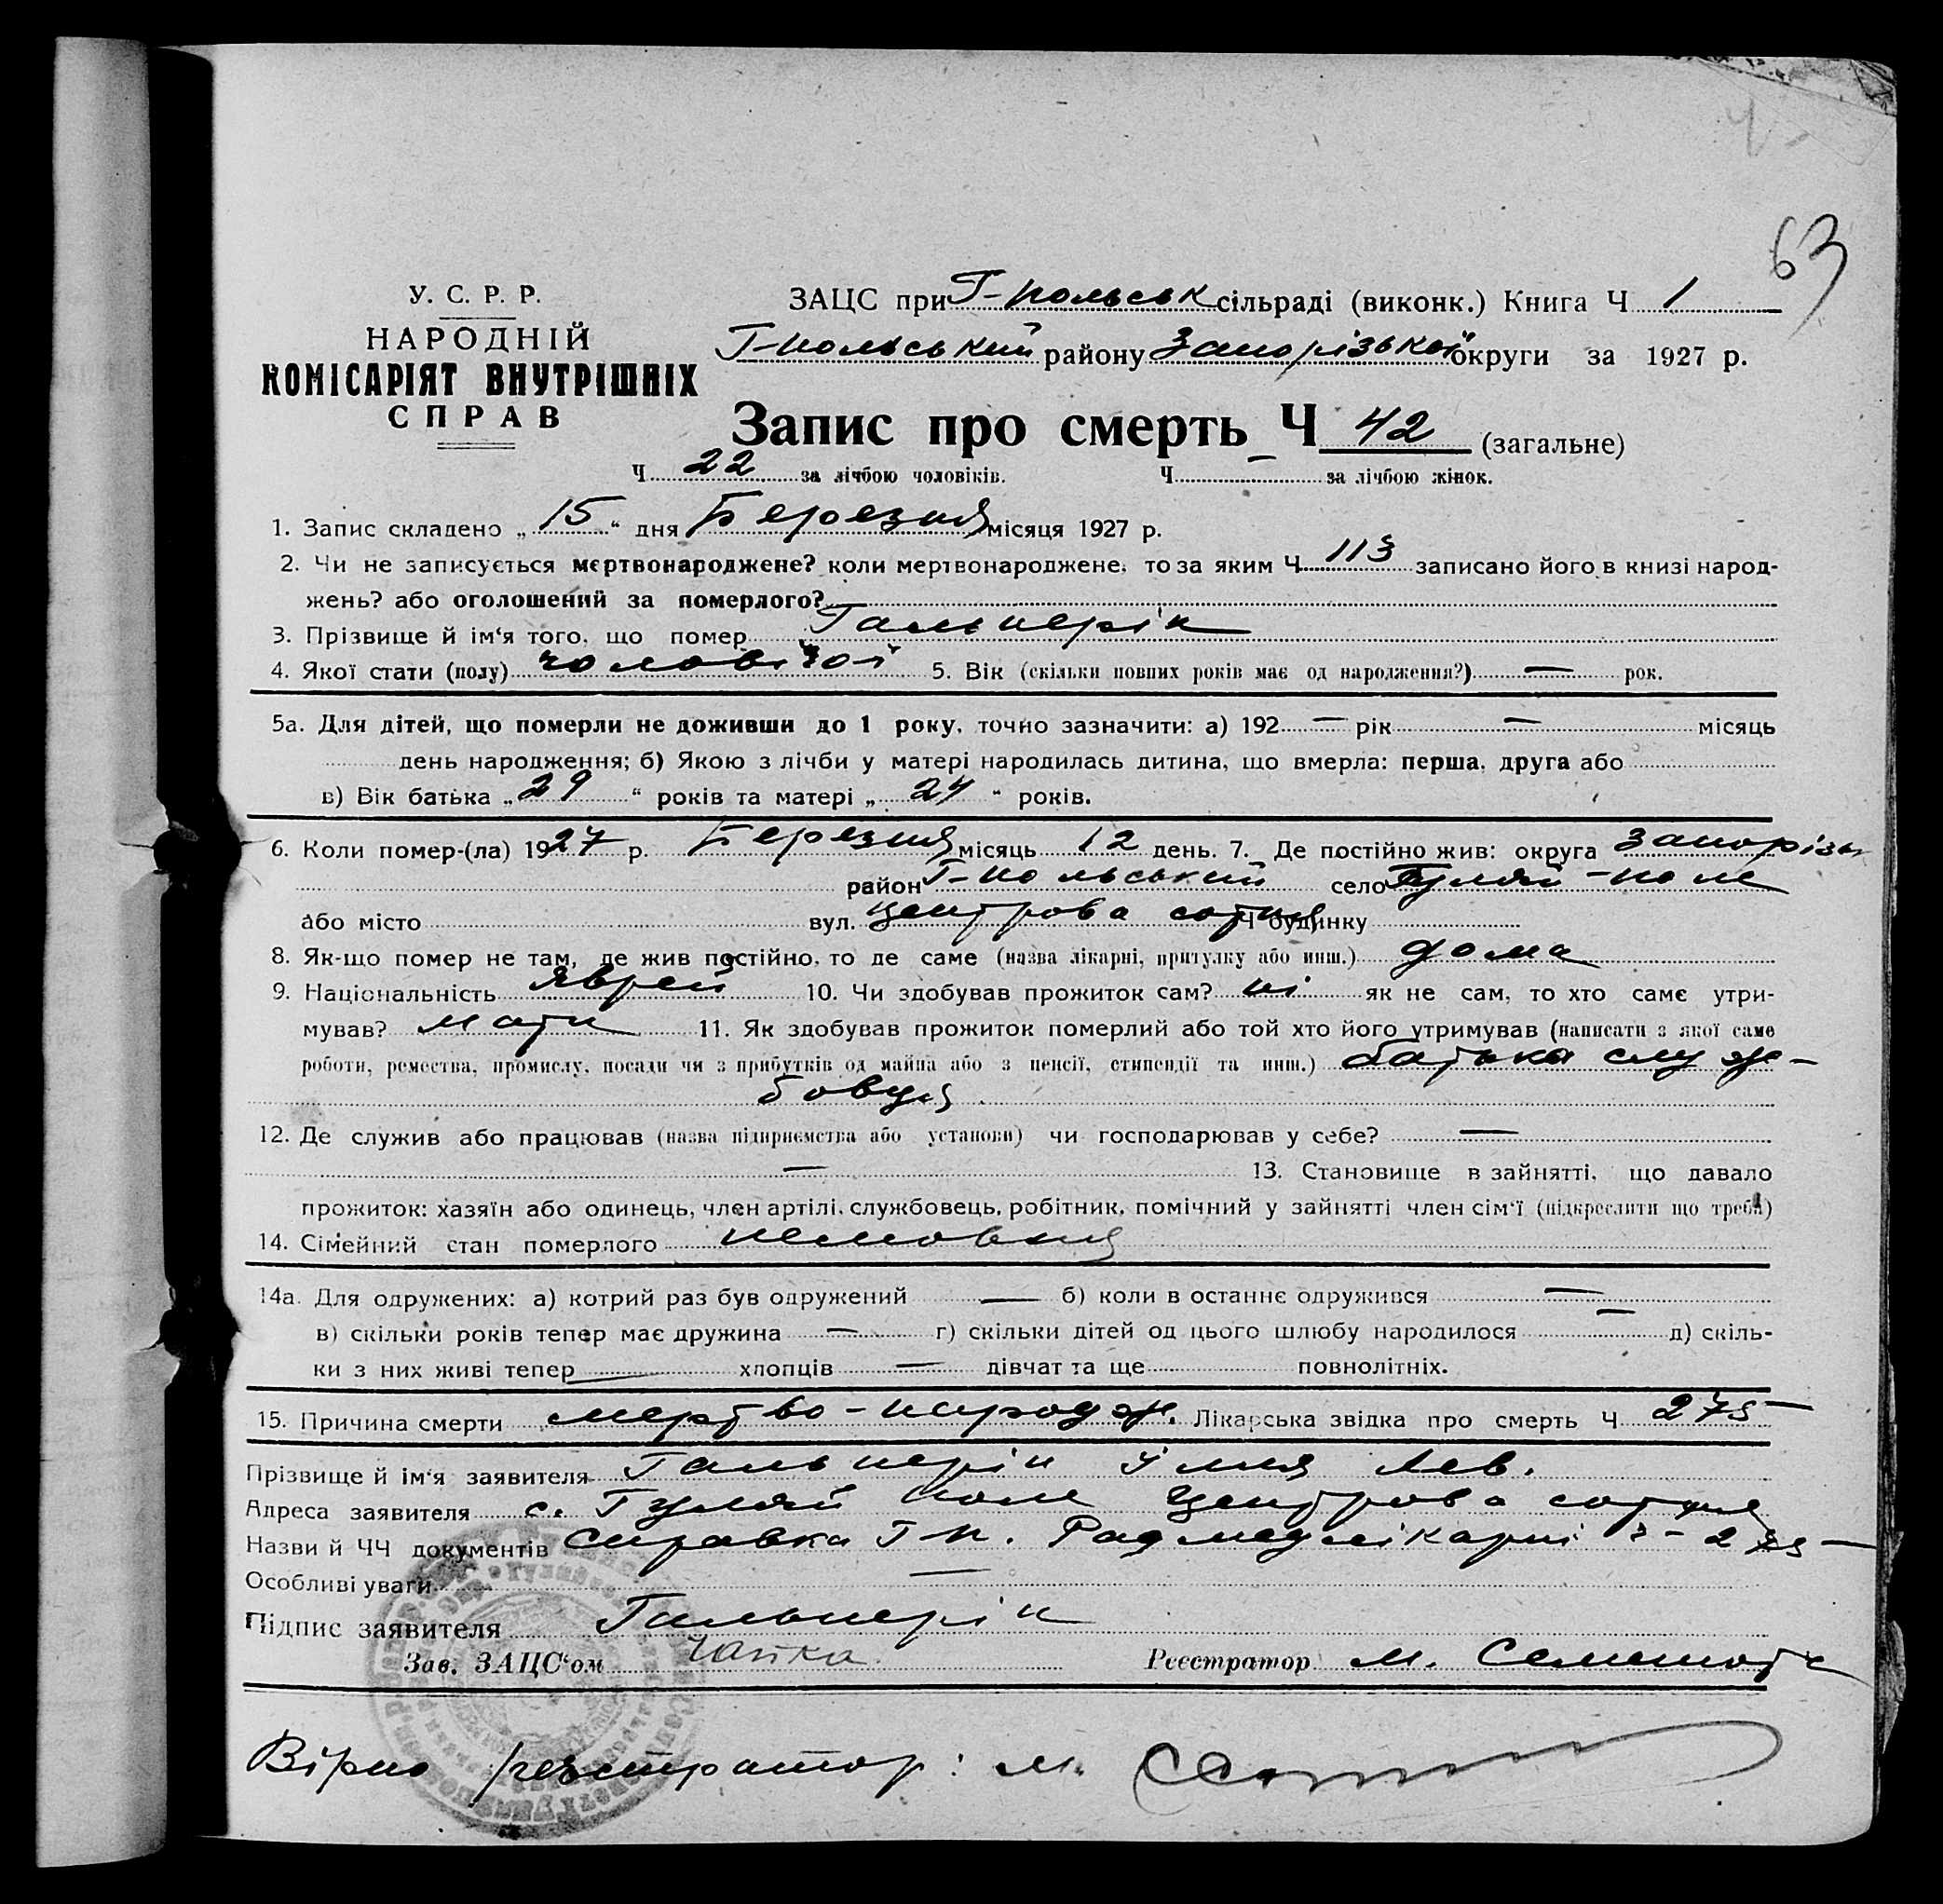 63
У. С. Р. Р.
НАРОДНІЙ
КОМІСАРІЯТ ВНУТРІШНІХ
СПРАВ
ЗАЦС при Г-польськ сільраді (виконк.) Книга Ч 1
Г-польський району Запорізької округи за 1927 р.
Запис про смерть Ч 42 (загальне)
Ч 22 за лічбою чоловіків. Ч — за лічбою жінок.
1. Запис складено „ 15 “ дня Березня місяця 1927 р.
2. Чи не записується мертвонароджене? коли мертвонароджене, то за яким Ч 113 записано його в книзі народ-
жень? або оголошений за померлого?
3. Прізвище й ім‘я того, що помер Гальперін
4. Якої стати (полу) чоловічої 5. Вік (скільки повних років має од народження?) — рок.
5а. Для дітей, що померли не доживши до 1 року, точно зазначити: а) 192 — рік — місяць
день народження; б) Якою з лічби у матері народилась дитина, що вмерла: перша, друга або
в) Вік батька „ 29 “ років та матері „ 24 “ років.
6. Коли помер-(ла) 1927 р. Березня місяць 12 день. 7. Де постійно жив: округа Запорізьк
район Г-польський село Гуляй-поле
або місто вул. Центрова сотня Ч будинку
8. Як-що помер не там, де жив постійно, то де саме (назва лікарні, притулку або инш.) дома
9. Національність яврей 10. Чи здобував прожиток сам? ні як не сам, то хто саме утри-
мував? мати 11. Як здобував прожиток померлий або той хто його утримував (написати з якої саме
роботи, ремества, промислу, посади чи з прибутків од майна або з пенсії, стипендії та инш.) батька служ-
бовця
12. Де служив або працював (назва підприємства або установи) чи господарював у себе? —
— 13. Становище в зайнятті, що давало
прожиток: хазяїн або одинець, член артілі, службовець, робітник, помічний у зайнятті член сім‘ї (підкреслити що треба)
14. Сімейний стан померлого немовня
14а. Для одружених: а) котрий раз був одружений — б) коли в останнє одружився —
в) скільки років тепер має дружина — г) скільки дітей од цього шлюбу народилося — д) скіль-
ки з них живі тепер — хлопців — дівчат та ще повнолітніх.
15. Причина смерти мертво-народж. Лікарська звідка про смерть Ч 275
Прізвище й ім‘я заявителя Гальперін Ілля Лев.
Адреса заявителя с. Гуляй поле Центрова сотня
Назви й ЧЧ документів справка Г П. Радмедлікарні
Особливі уваги —
Підпис заявителя Гальперін
Зав. ЗАЦС‘ом Чайка Реєстратор М.
Вірно реєстратор: М.